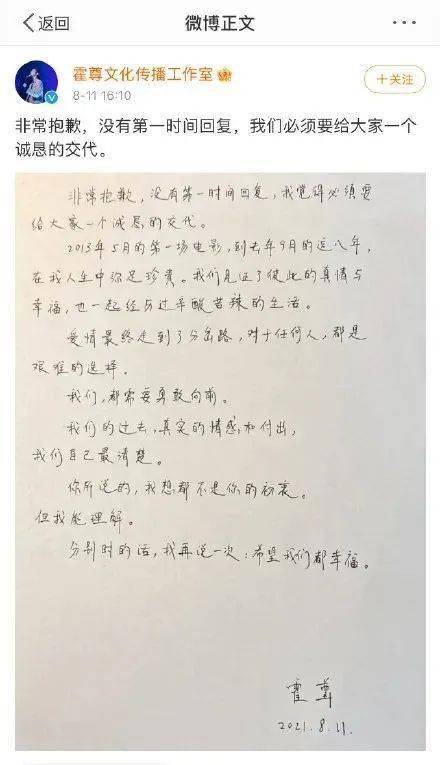 返回
微博正文
霍尊文化传播工作室
8-11 16:10
+关注
非常抱歉，没有第一时间回复，我们必须要给大家一个
诚恳的交代。
非常抱歉，没有第一时间回复，我觉得必须要
给大家一个诚恳的交代。
2013年5月的第一场电影，到去年9月的这八年，
在我人生中弥足珍贵。我们见证了彼此的真情与
幸福，也一起经历过辛酸苦辣的生活。
爱情最终走到了分岔路，对于任何人，都是
艰难的选择。
我们，都需要勇敢向前。
我们的过去，真实的情感和付出，
我们自己最清楚。
你所说的，我想都不是你的初衷。
但我能理解。
分别时的话，我再说一次：希望我们都幸福。
霍尊
2021.8.11.